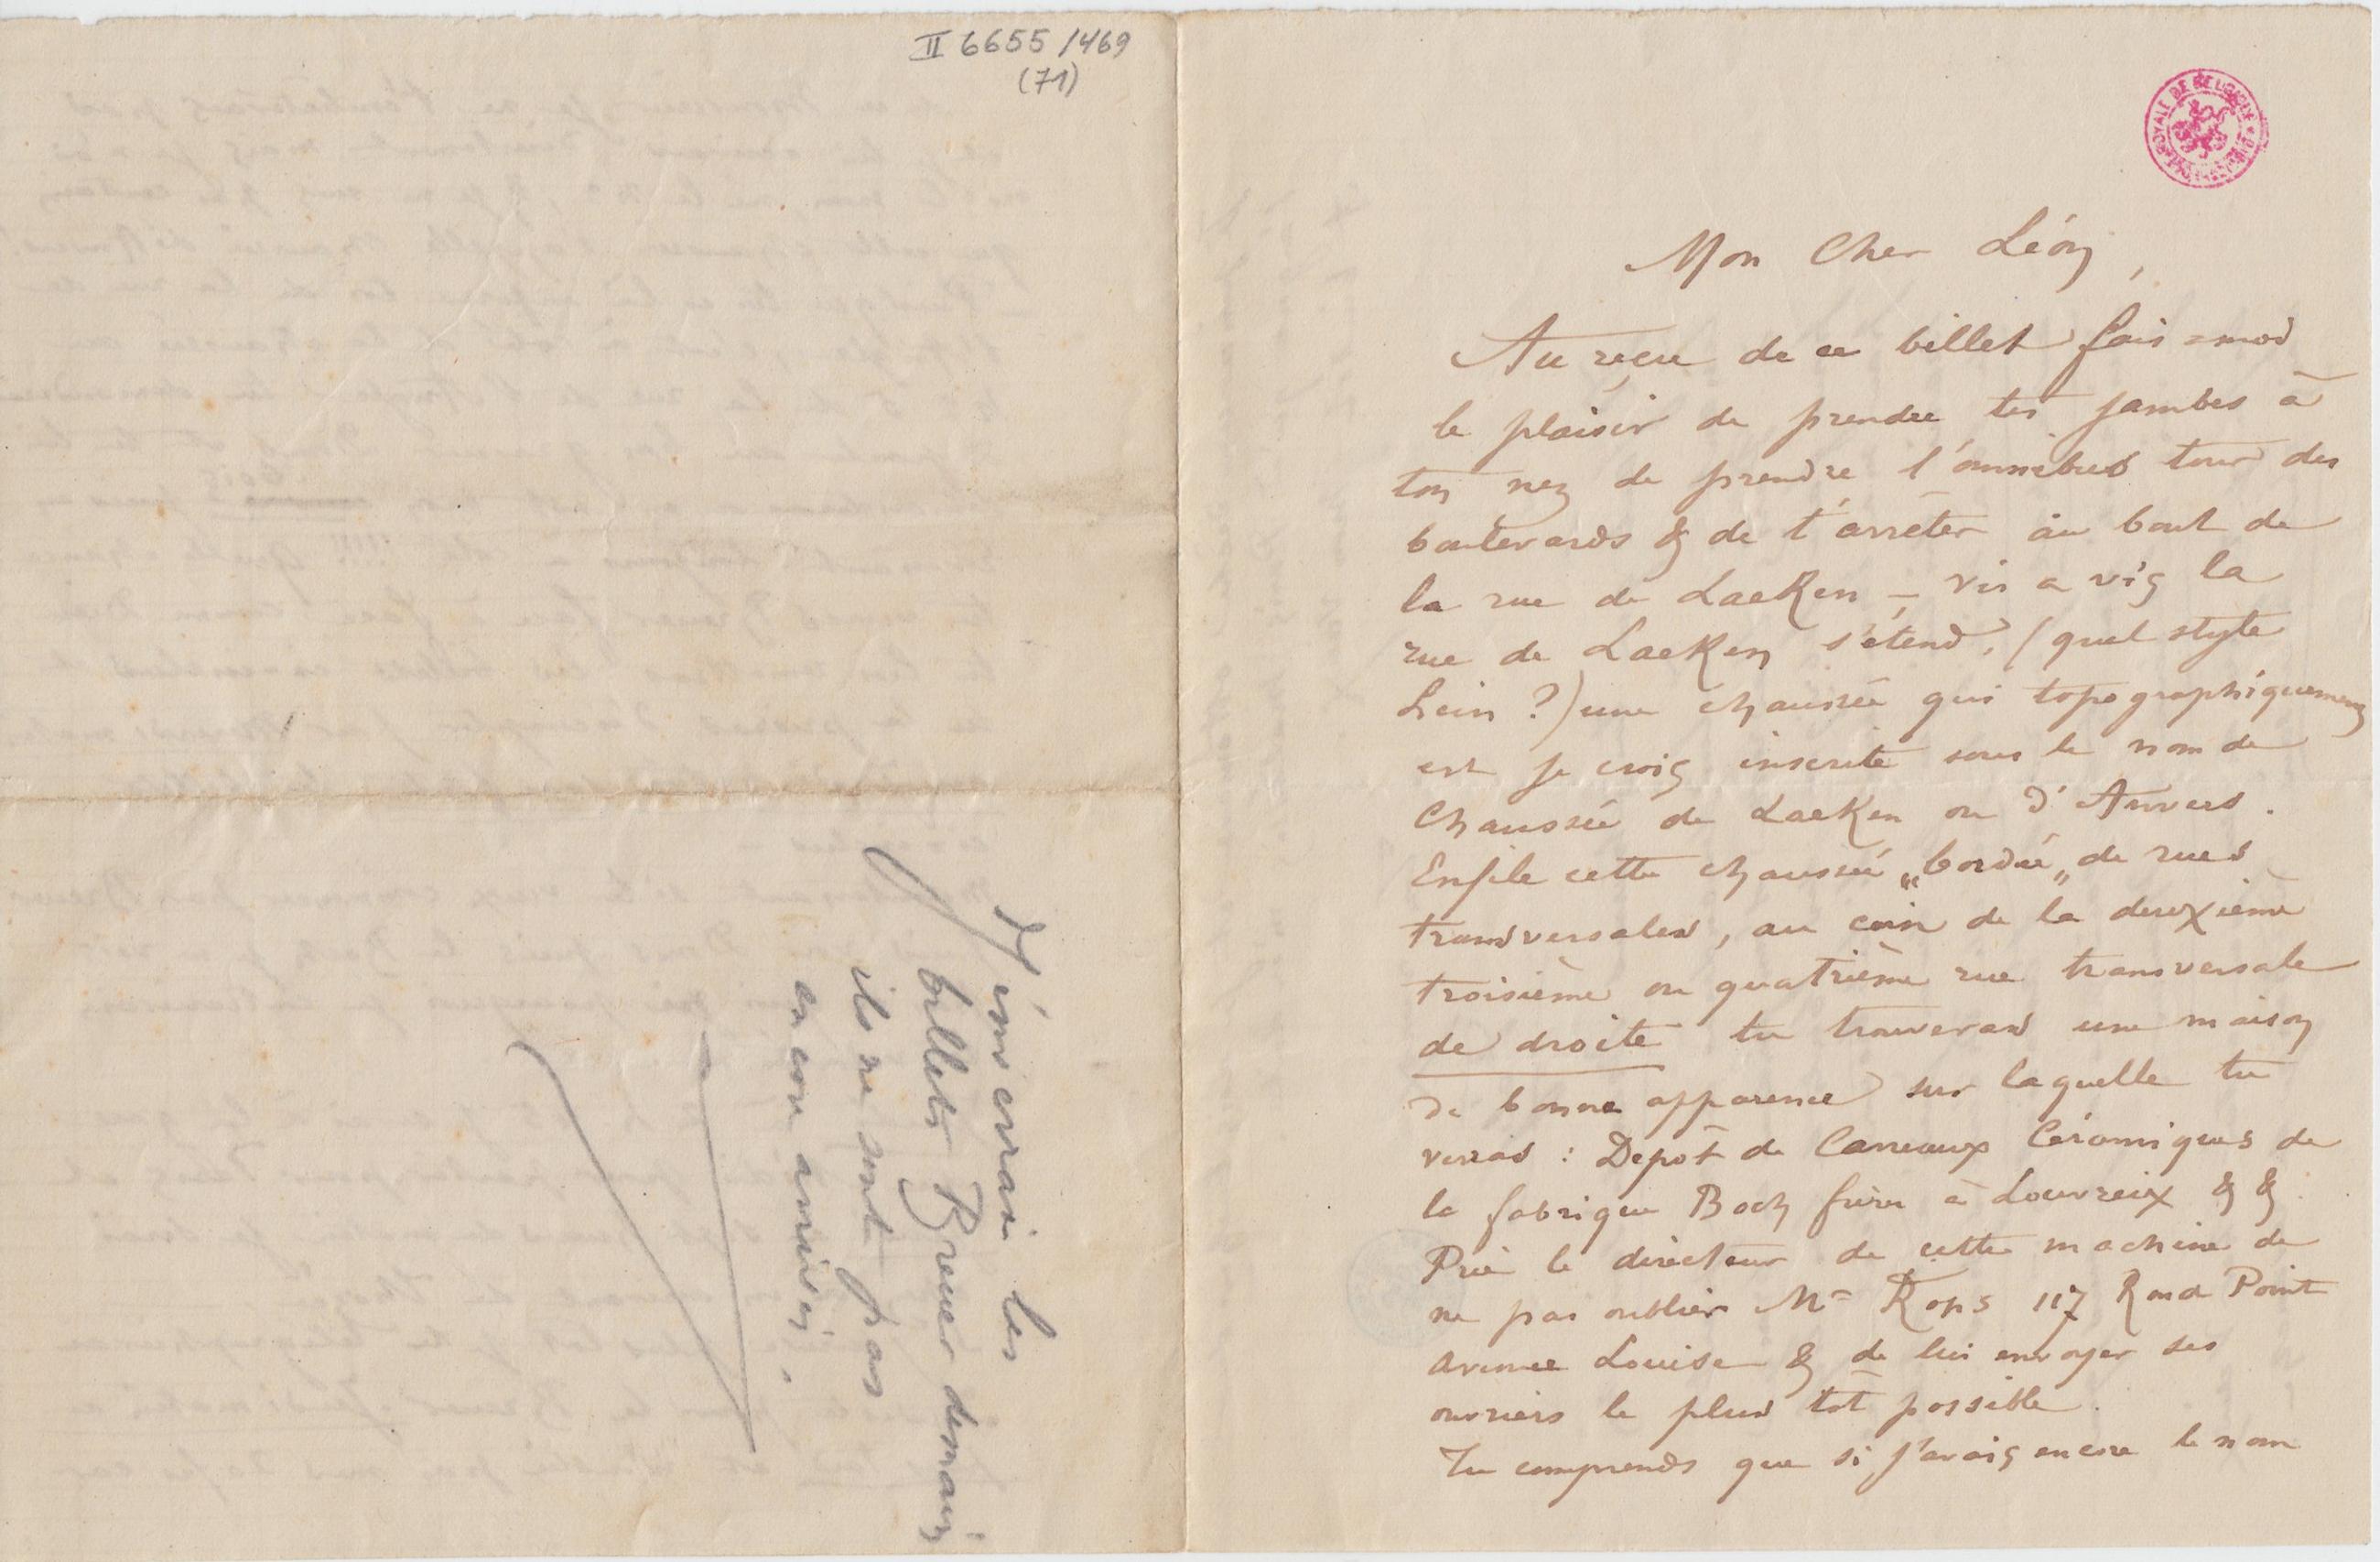 II 6655 / 469
(71)
J'enverrai les
billets Breuer demain
ils ne sont pas
encore arrivés.
Mon Cher Léon,
Au reçu de ce billet fais-moi
le plaisir de prendre tes jambes à
ton nez de prendre l'omnibus tour des
boulevards & de t'arrêter au bout de
la rue de Laeken – vis a vis la
rue de Laeken s'étend, (quel style
hein ?) une chaussée qui topographiquement
est je crois inscrite sous le nom de
Chaussée de Laeken ou d'Anvers.
Enfile cette chaussée „bordée„ de rues
transversales, au coin de la deuxième
troisième ou quatrième rue transversale
de droite tu trouveras une maison
de bonne apparence sur laquelle tu
verras : Depôt de Carreaux Céramiques de
la fabrique Boch frères à Louvreix & &
Prie le directeur de cette machine de
ne pas oublier Mr Rops 117 Rond Point
avenue Louise & de lui envoyer ses
ouvriers le plus tôt possible.
Tu comprends que si j'avais encore le nom